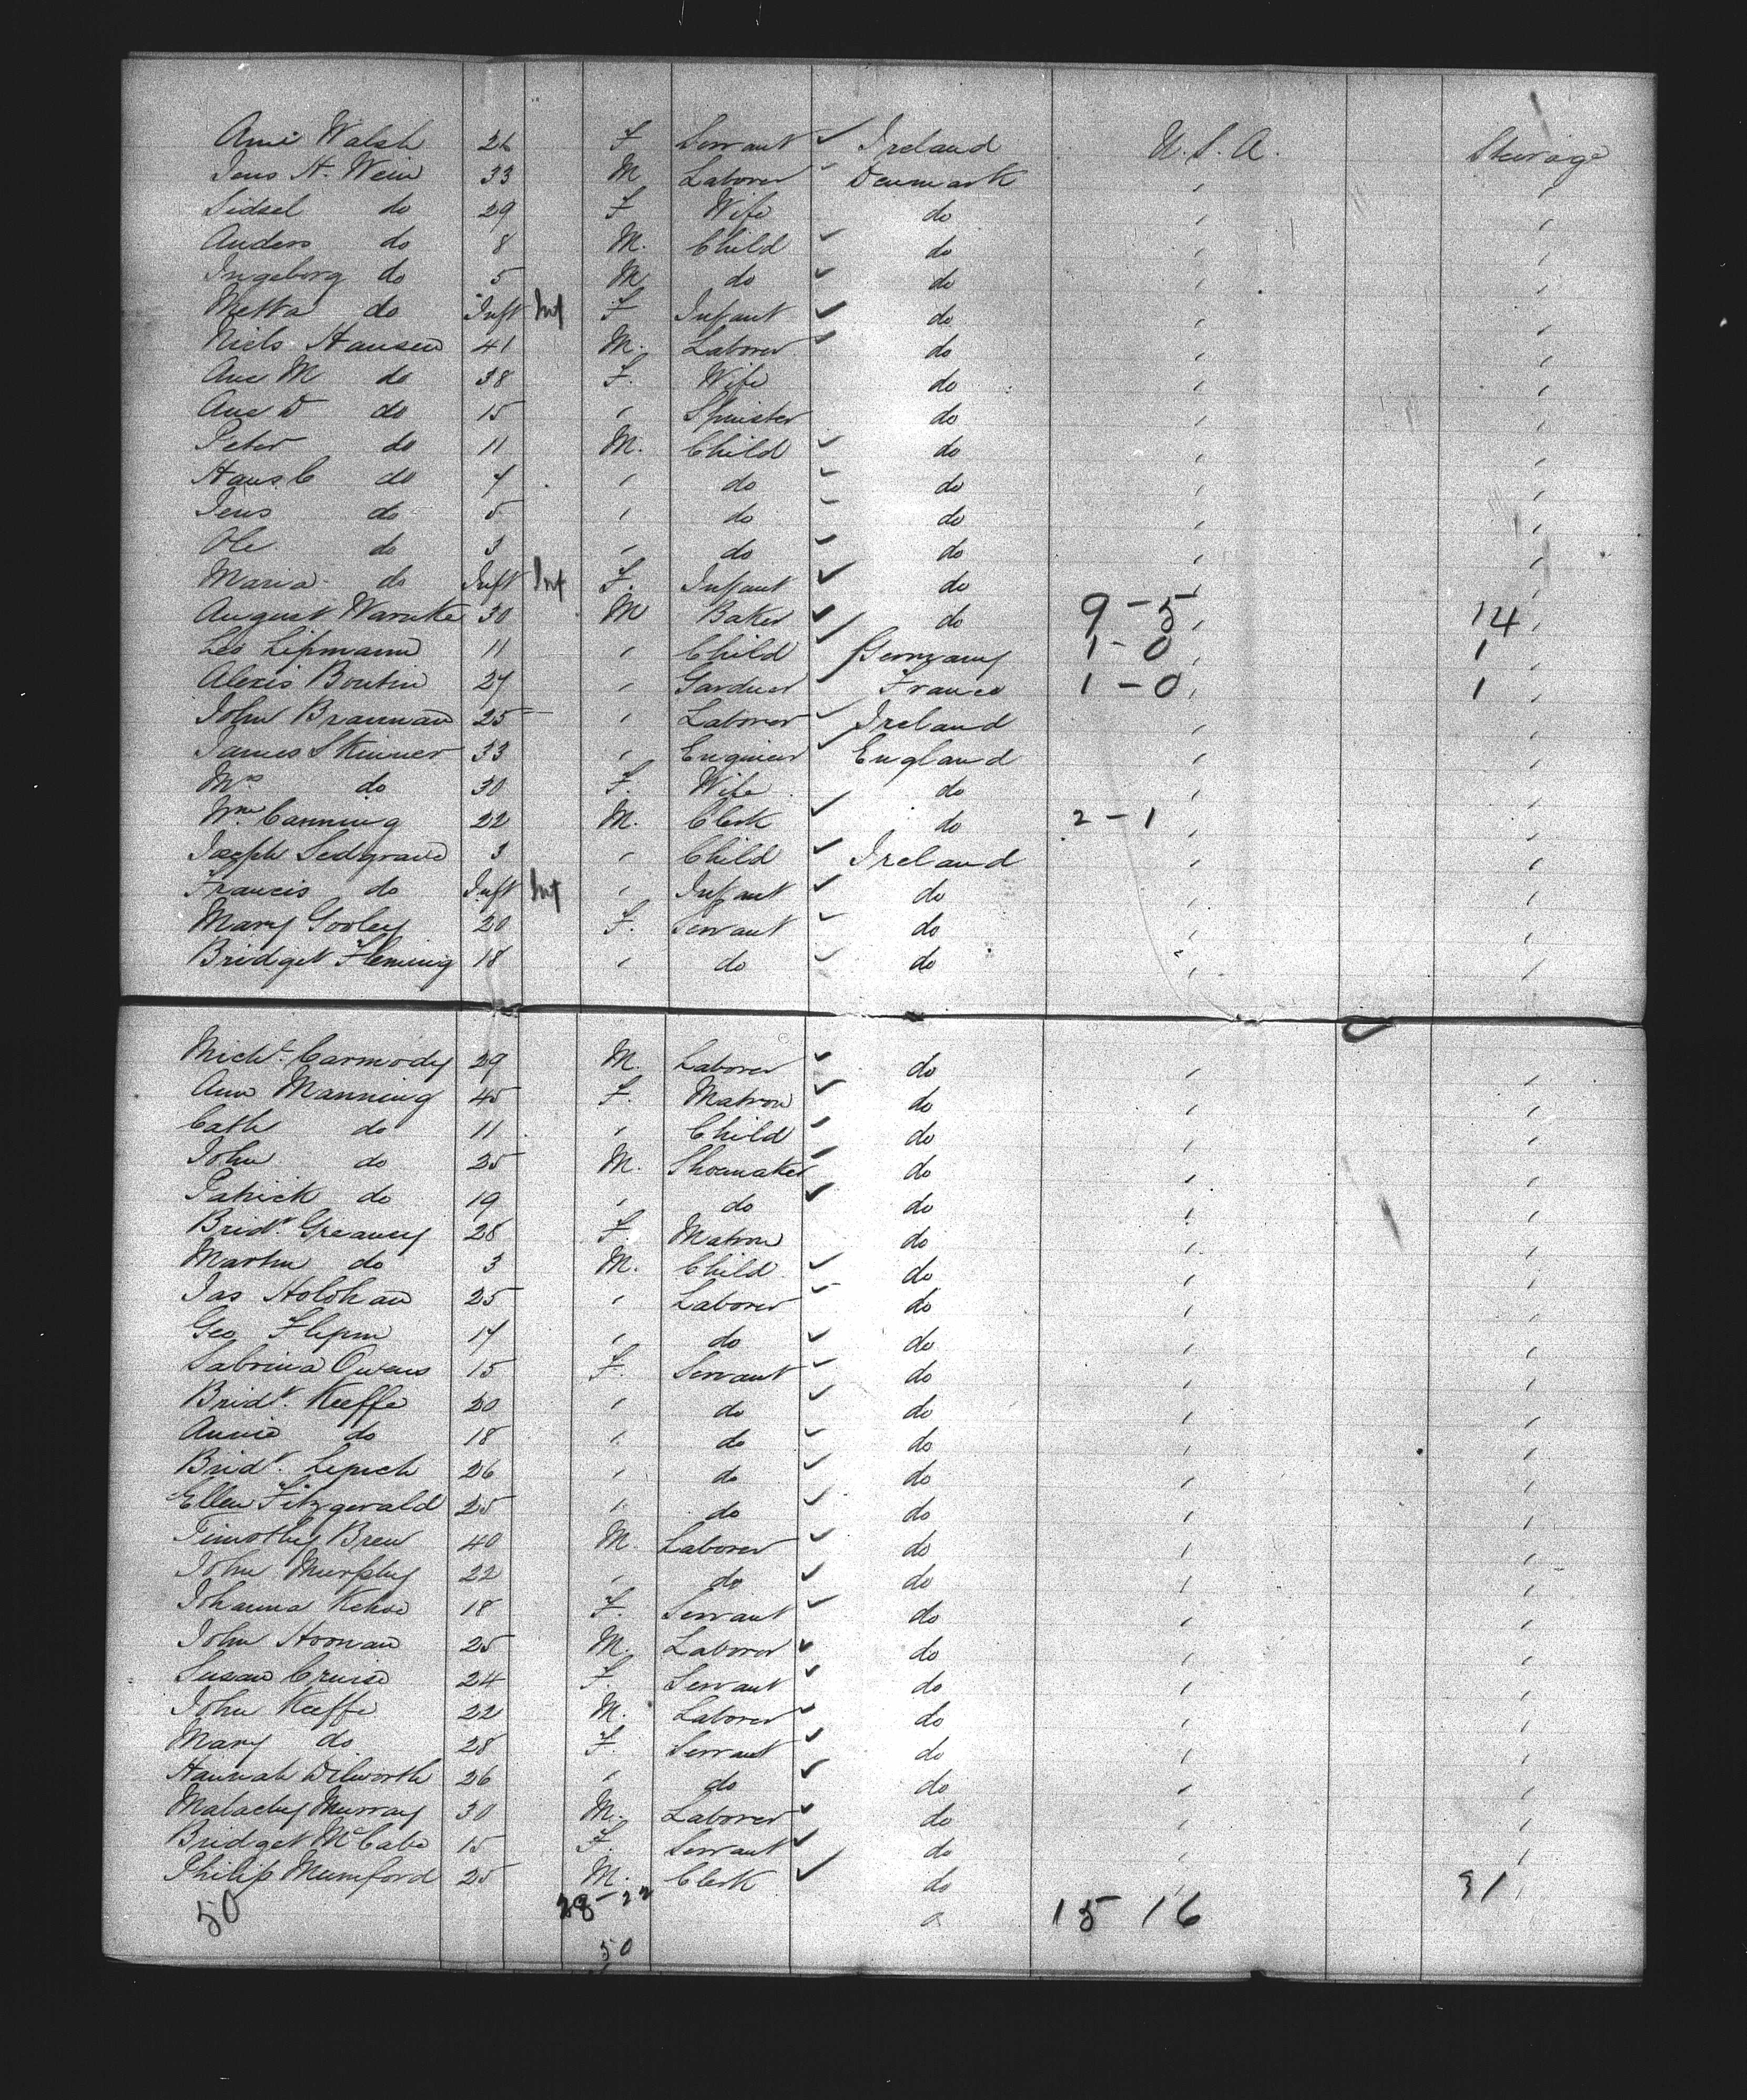 Ann Walsh 26 F Servant ✓ Ireland U.S.A. Steerage
Jens H. Wein 33 M Laborer Denmark " "
Sidsel do 29 F Wife do " "
Anders do 8 M. Child ✓ do " "
Ingeborg do 5 M do ✓ do " "
Metta do Inft Inf F Infant ✓ do " "
Niels Hansen 41 M. Laborer ✓ do " "
Ane M do 38 F. Wife do " "
Ane D do 15 " Spinster do " "
Peter do 11 M. Child ✓ do " "
Hans C do 7 " do ✓ do " "
Jens do 5 " do ✓ do " "
Ole do 3 " do ✓ do " "
Maria do Inft Inf F. Infant ✓ do " "
August Warnke 30 M Baker ✓ do 9-5 " 14 "
Leo Lipmann 11 " Child ✓ Germany 1-0 " 1 "
Alexis Boutin 27 " Gardner ✓ France 1-0 " 1 "
John Brannan 25 " Laborer ✓ Ireland " "
James Skinner 33 " Engineer ✓ England " "
Mrs do 30 F. Wife do " "
Wm Canning 22 M. Clerk ✓ do 2-1 " "
Joseph Sedgrave 3 " Child ✓ Ireland " "
Francis do Inft Inf " Infant ✓ do " "
Mary Gooley 20 F. Servant ✓ do " "
Bridget Fleming 18 " do ✓ do " "
Michl. Carmody 29 M. Laborer ✓ do " "
Ann Manning 45 F. Matron ✓ do " "
Cath do 11 " Child ✓ do " "
John do 25 M. Shoemaker do " "
Patrick do 19 " do ✓ do " "
Bridt. Greaney 28 F. Matron do " "
Martin do 3 M. Child ✓ do " "
Jas Holohan 25 " Laborer ✓ do " "
Geo 17 " do ✓ do " "
Sabrina Owens 15 F. Servant ✓ do " "
Bridt. Keeffe 20 " do ✓ do " "
Annie do 18 " do ✓ do " "
Bridt. Lynch 26 " do ✓ do " "
Ellen Fitzgerald 25 " do ✓ do " "
Timothy Brew 40 M. Laborer ✓ do " "
John Murphy 22 " do ✓ do " "
Johanna Kehoe 18 F. Servant ✓ do " "
John Noonan 25 M. Laborer ✓ do " "
Susan Cruise 24 F. Servant ✓ do " "
John Keeffe 22 M. Laborer ✓ do " "
Mary do 28 F. Servant ✓ do " "
Hannah Dilworth 26 " do ✓ do " "
Malachy Murray 30 M. Laborer ✓ do " "
Bridget McCabe 15 F. Servant ✓ do " "
Philip Mumford 25 M. Clerk ✓ do " 31 "
50 28-22 15 16
50